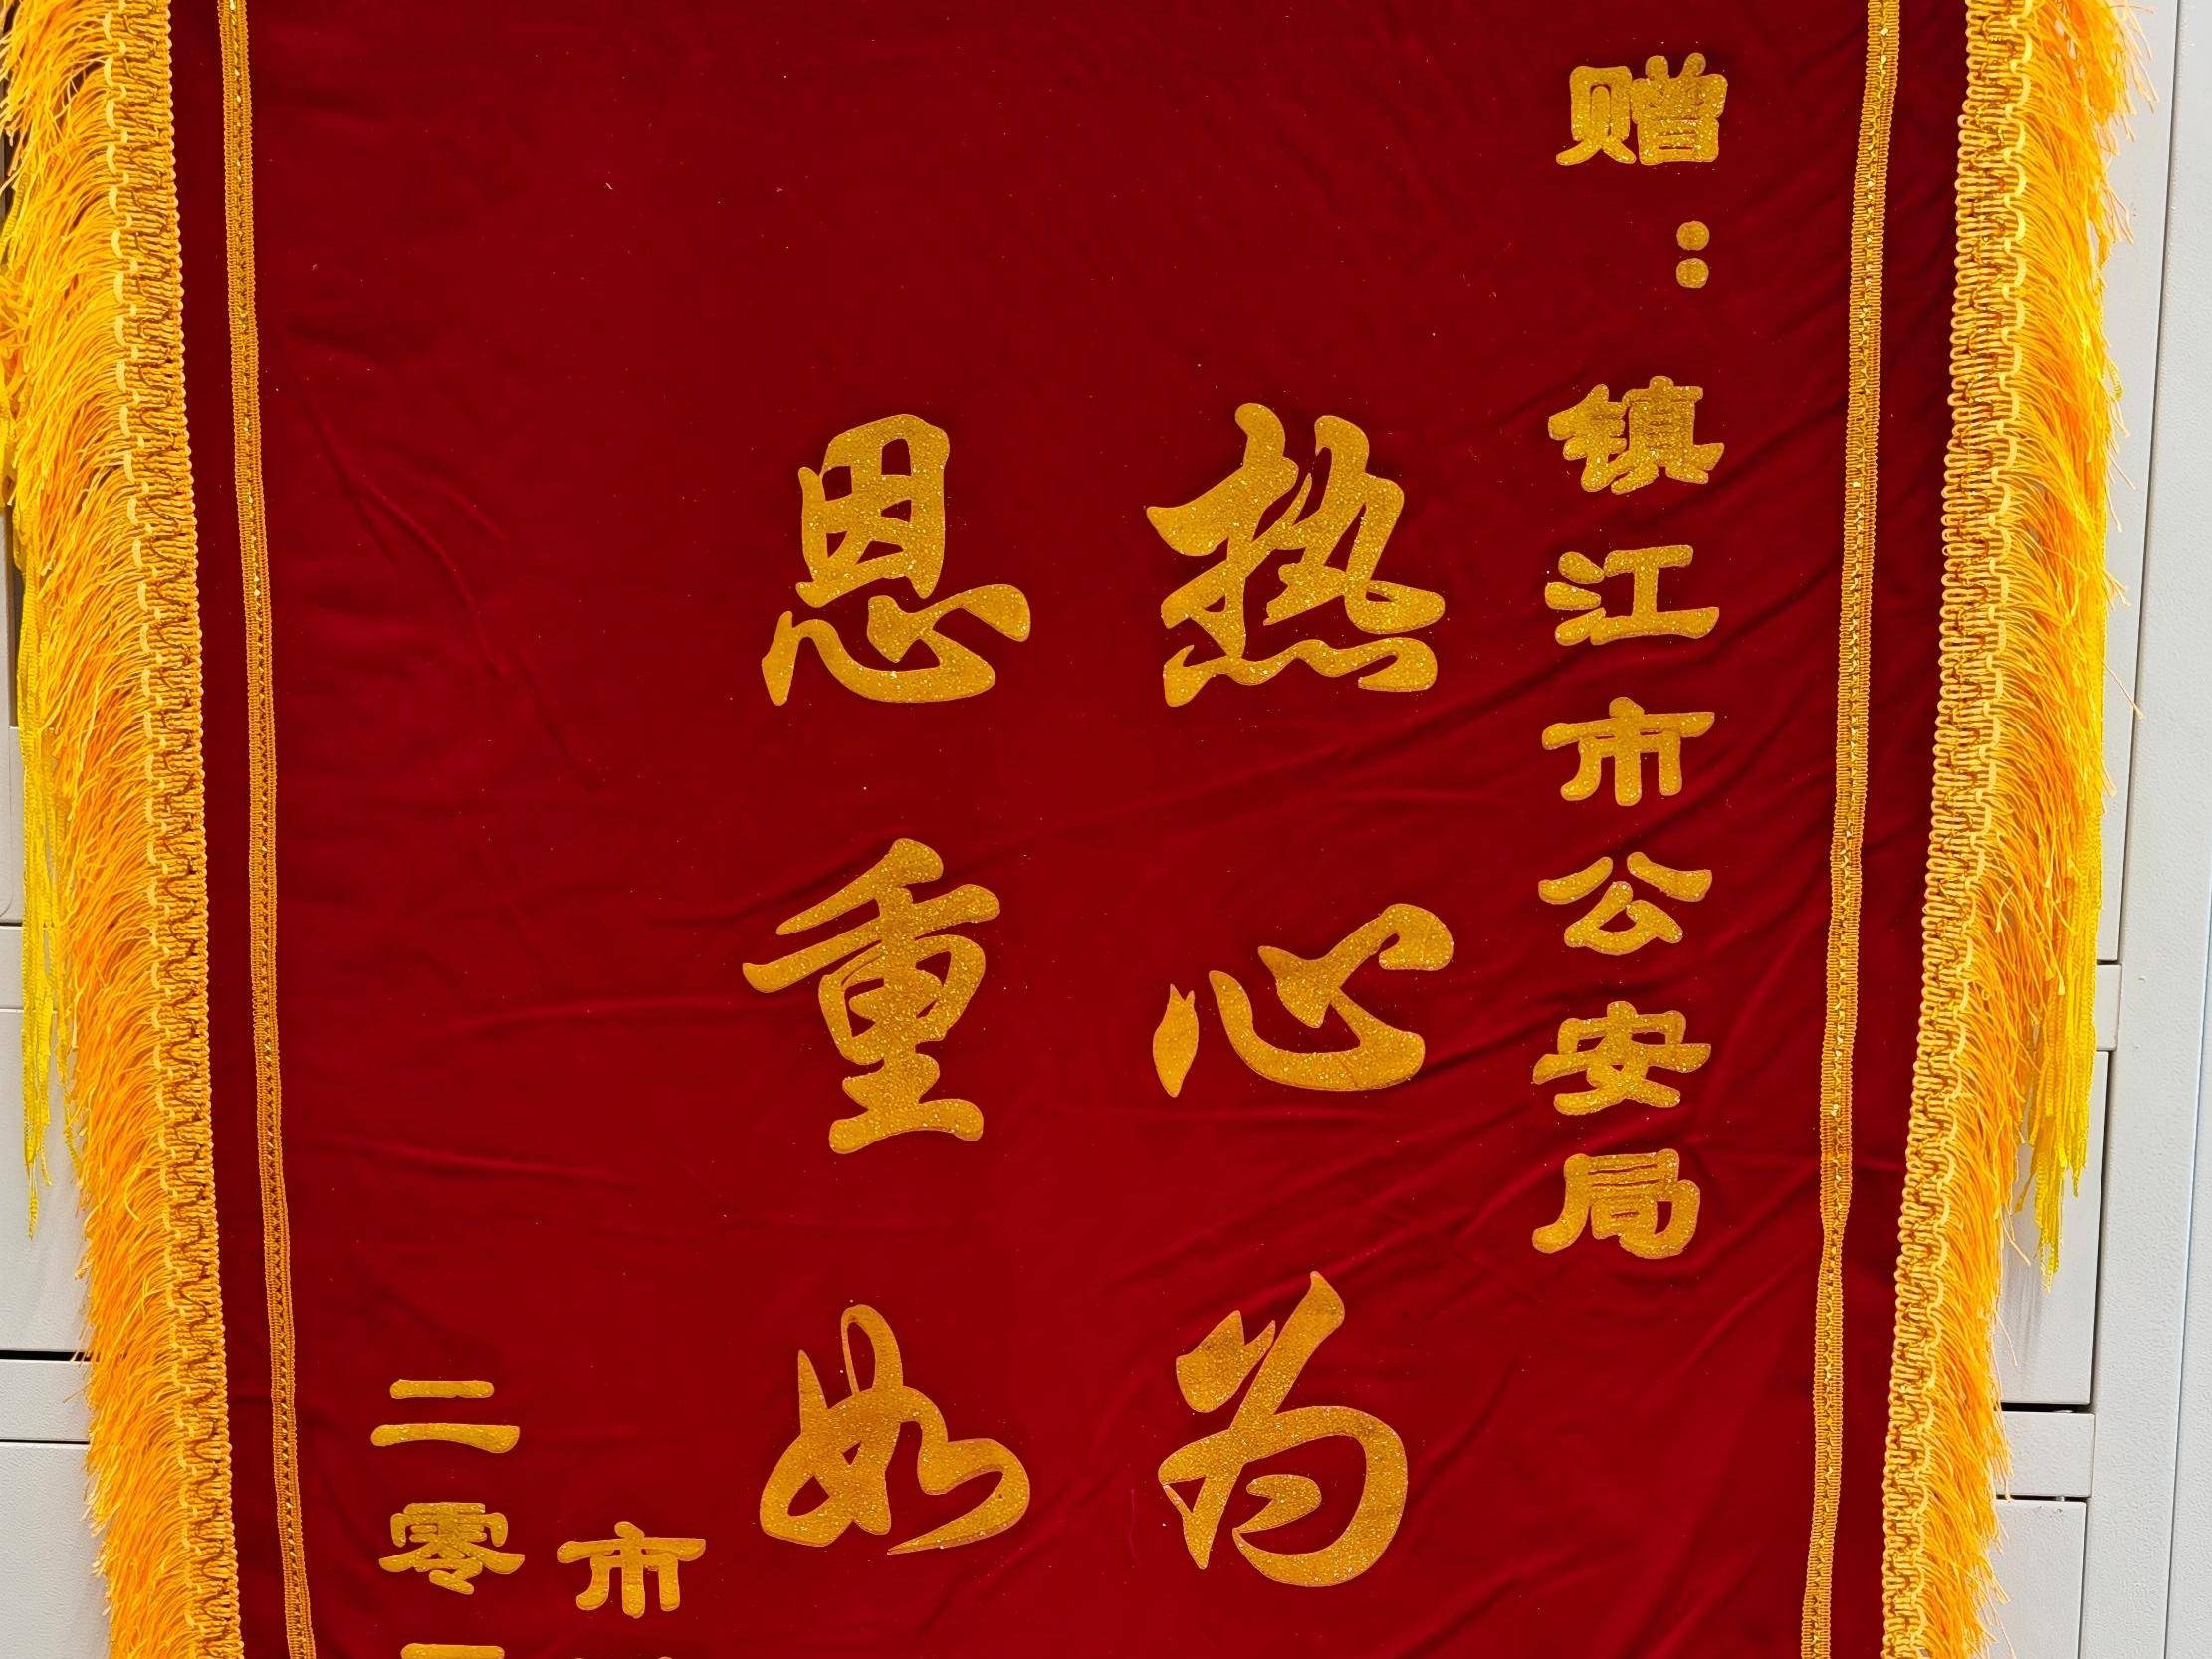 赠：镇江市公安局
热心为
恩重如
市
二零